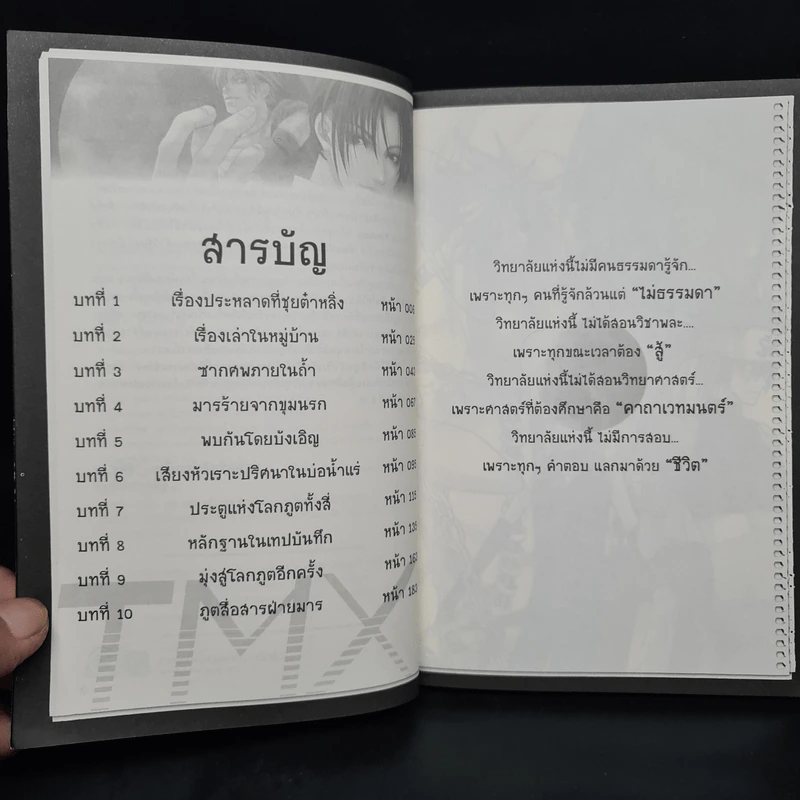 สารบัญ
บทที่ 1 เรื่องประหลาดที่ชุยต๋าหลิ่ง หน้า 006
บทที่ 2 เรื่องเล่าในหมู่บ้าน หน้า 025
บทที่ 3 ซากศพภายในถ้ำ หน้า 043
บทที่ 4 มารร้ายจากขุมนรก หน้า 067
บทที่ 5 พบกันโดยบังเอิญ หน้า 085
บทที่ 6 เสียงหัวเราะปริศนาในบ่อน้ำแร่ หน้า 095
บทที่ 7 ประตูแห่งโลกภูตทั้งสี่ หน้า 115
บทที่ 8 หลักฐานในเทปบันทึก หน้า 135
บทที่ 9 มุ่งสู่โลกภูตอีกครั้ง หน้า 163
บทที่ 10 ภูตสื่อสารฝ่ายมาร หน้า 183
TMX
วิทยาลัยแห่งนี้ไม่มีคนธรรมดารู้จัก...
เพราะทุกๆ คนที่รู้จักล้วนแต่ "ไม่ธรรมดา"
วิทยาลัยแห่งนี้ ไม่ได้สอนวิชาพละ....
เพราะทุกขณะเวลาต้อง "สู้"
วิทยาลัยแห่งนี้ไม่ได้สอนวิทยาศาสตร์...
เพราะศาสตร์ที่ต้องศึกษาคือ "คาถาเวทมนตร์"
วิทยาลัยแห่งนี้ ไม่มีการสอบ...
เพราะทุกๆ คำตอบ แลกมาด้วย "ชีวิต"